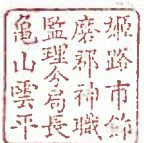 姫路市飾
磨郡神職
監理分局長
亀山雲平